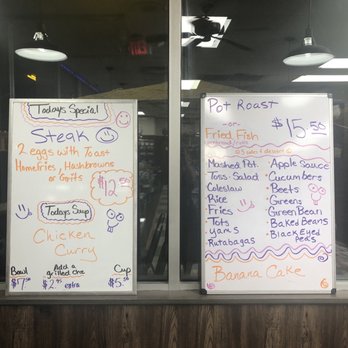 Todays Special
Steak
2 eggs with Toast
Homefries, Hashbrowns
or Grits
Todays Soup
Chicken
Curry
Bowl
Add a
grilled chz
Cup
Pot Roast
-or-
Fried Fish
Mashed Pot.
Toss Salad
Coleslaw
Rice
Fries
Tots
Yams
Rutabagas
Apple Sauce
Cucumbers
Beets
Greens
Green Bean
Baked Beans
Black Eyed
Peas
Banana Cake